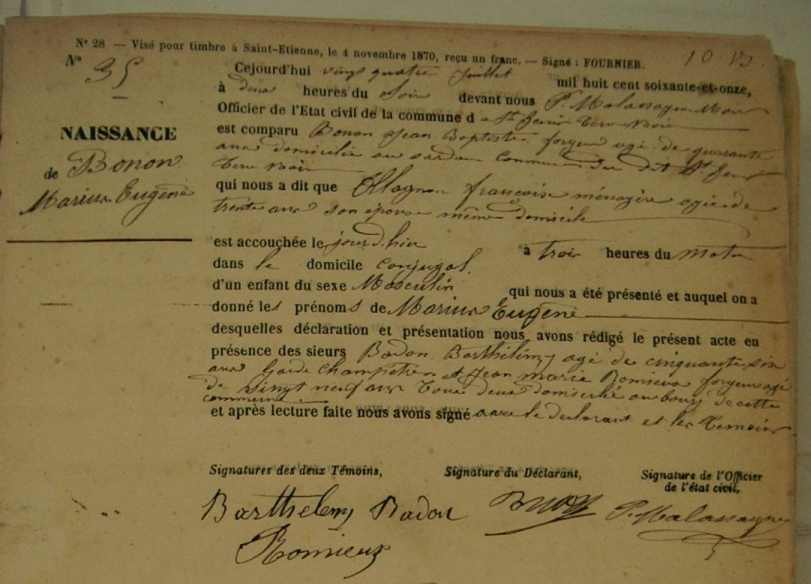 N° 28 — Visé pour timbre à Saint-Etienne, le 4 novembre 1870, reçu un franc. — Signé : FOURNIER.
N° 35
NAISSANCE
de Bonon
Marius Eugène
Cejourd'hui vingt quatre Juillet mil huit cent soixante-et-onze,
à deux heures du Soir devant nous P. Malassagne Maire
Officier de l'Etat civil de la commune de St Genis Terre Noire
est comparu Bonon Jean Baptiste forgeur agé de quarante
ans domicilié au commune du dit St Genis
Terre Noire
qui nous a dit que Ollagnon françoise ménagère agée de
trente ans son épouse même domicile
est accouchée le jourd'hier à trois heures du Matin
dans le domicile Conjugal
d'un enfant du sexe Masculin qui nous a été présenté et auquel on a
donné les prénoms de Marius Eugène
desquelles déclaration et présentation nous avons rédigé le présent acte en
présence des sieurs Badon Barthélemy agé de cinquante six
ans Garde champêtre et Jean Marie Romieux forgeur agé
de vingt neuf ans tous deux domicilié au bourg de cette
commune
et après lecture faite nous avons signé avec le déclarant et les Temoins
Signatures des deux Témoins, Signature du Déclarant, Signature de l'Officier
de l'état civil,
Barthelemy Badon P. Malassagne
Romieux